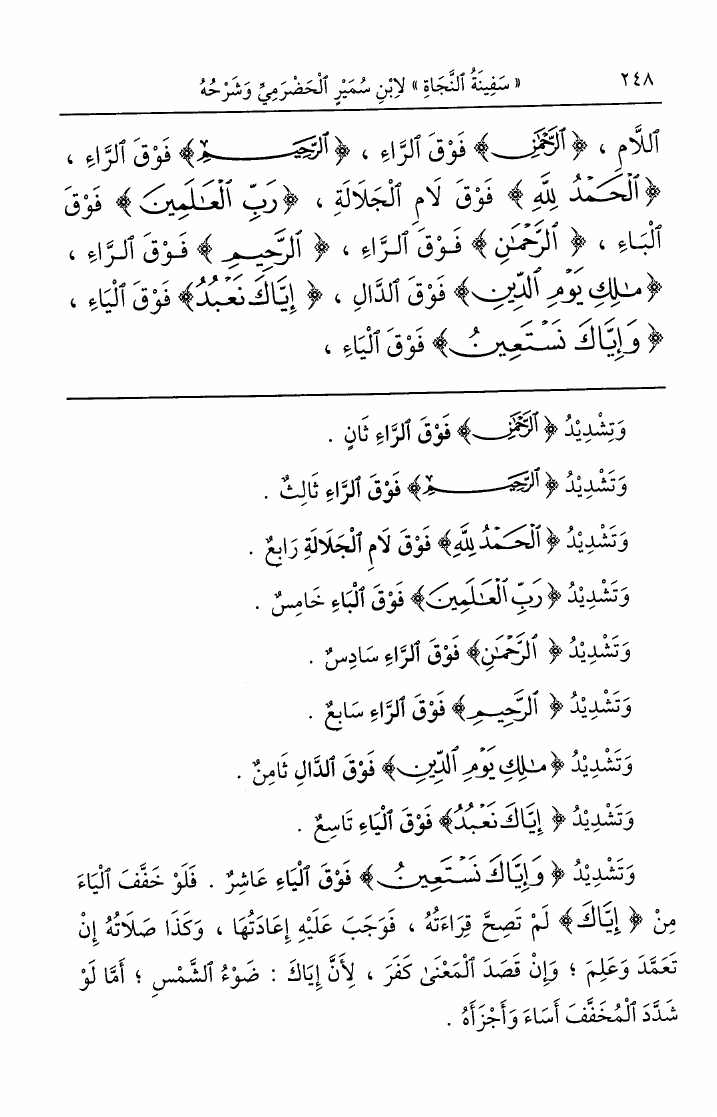 ٢٤٨ « سَفِينَةُ ٱلنَّجَاةِ » لِابْنِ سُمَيْرٍ ٱلْحَضْرَمِيِّ وَشَرْحُهُ
ٱللَّامِ ، ﴿ ٱلرَّحْمَٰنِ ﴾ فَوْقَ ٱلرَّاءِ ، ﴿ ٱلرَّحِيمِ ﴾ فَوْقَ ٱلرَّاءِ ،
﴿ ٱلْحَمْدُ لِلَّهِ ﴾ فَوْقَ لَامِ ٱلْجَلَالَةِ ، ﴿ رَبِّ ٱلْعَٰلَمِينَ ﴾ فَوْقَ
ٱلْبَاءِ ، ﴿ ٱلرَّحْمَٰنِ ﴾ فَوْقَ ٱلرَّاءِ ، ﴿ ٱلرَّحِيمِ ﴾ فَوْقَ ٱلرَّاءِ ،
﴿ مَٰلِكِ يَوْمِ ٱلدِّينِ ﴾ فَوْقَ ٱلدَّالِ ، ﴿ إِيَّاكَ نَعْبُدُ ﴾ فَوْقَ ٱلْيَاءِ ،
﴿ وَإِيَّاكَ نَسْتَعِينُ ﴾ فَوْقَ ٱلْيَاءِ ،
وَتَشْدِيْدُ ﴿ ٱلرَّحْمَٰنِ ﴾ فَوْقَ ٱلرَّاءِ ثَانٍ .
وَتَشْدِيْدُ ﴿ ٱلرَّحِيمِ ﴾ فَوْقَ ٱلرَّاءِ ثَالِثٌ .
وَتَشْدِيْدُ ﴿ ٱلْحَمْدُ لِلَّهِ ﴾ فَوْقَ لَامِ ٱلْجَلَالَةِ رَابِعٌ .
وَتَشْدِيْدُ ﴿ رَبِّ ٱلْعَٰلَمِينَ ﴾ فَوْقَ ٱلْبَاءِ خَامِسٌ .
وَتَشْدِيْدُ ﴿ ٱلرَّحْمَٰنِ ﴾ فَوْقَ ٱلرَّاءِ سَادِسٌ .
وَتَشْدِيْدُ ﴿ ٱلرَّحِيمِ ﴾ فَوْقَ ٱلرَّاءِ سَابِعٌ .
وَتَشْدِيْدُ ﴿ مَٰلِكِ يَوْمِ ٱلدِّينِ ﴾ فَوْقَ ٱلدَّالِ ثَامِنٌ .
وَتَشْدِيْدُ ﴿ إِيَّاكَ نَعْبُدُ ﴾ فَوْقَ ٱلْيَاءِ تَاسِعٌ .
وَتَشْدِيْدُ ﴿ وَإِيَّاكَ نَسْتَعِينُ ﴾ فَوْقَ ٱلْيَاءِ عَاشِرٌ . فَلَوْ خَفَّفَ ٱلْيَاءَ
مِنْ ﴿ إِيَّاكَ ﴾ لَمْ تَصِحَّ قِرَاءَتُهُ ، فَوَجَبَ عَلَيْهِ إِعَادَتُهَا ، وَكَذَا صَلَاتُهُ إِنْ
تَعَمَّدَ وَعَلِمَ ؛ وَإِنْ قَصَدَ ٱلْمَعْنَىٰ كَفَرَ ، لِأَنَّ إِيَاكَ : ضَوْءُ ٱلشَّمْسِ ؛ أَمَّا لَوْ
شَدَّدَ ٱلْمُخَفَّفَ أَسَاءَ وَأَجْزَأَهُ .